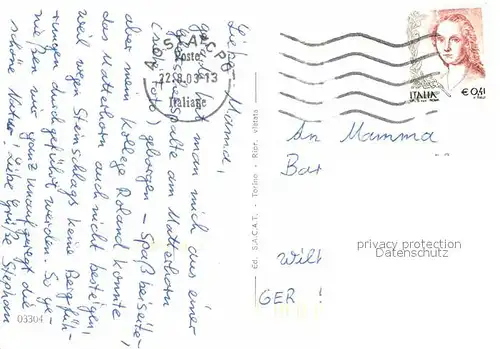 Liebe Mama,
gerade hat man mich aus einer
Gletscherspalte am Matterhorn
(siehe Foto) geborgen - Spaß beiseite -
aber mein Kollege Roland konnte
das Matterhorn auch nicht besteigen,
weil wegen Steinschlags keine Bergfüh-
rungen durchgeführt werden. So ge-
nießen wir ganz unaufgeregt die
schöne Natur! Liebe Grüße Stephan
03304
Poste
22.8.03-13
Italiane
Ed. S.A.C.A.T. - Torino - Ripr. vietata
ITALIA
€ 0,41
An Mamma
Bar
privacy protection
Datenschutz
Wilh
GER